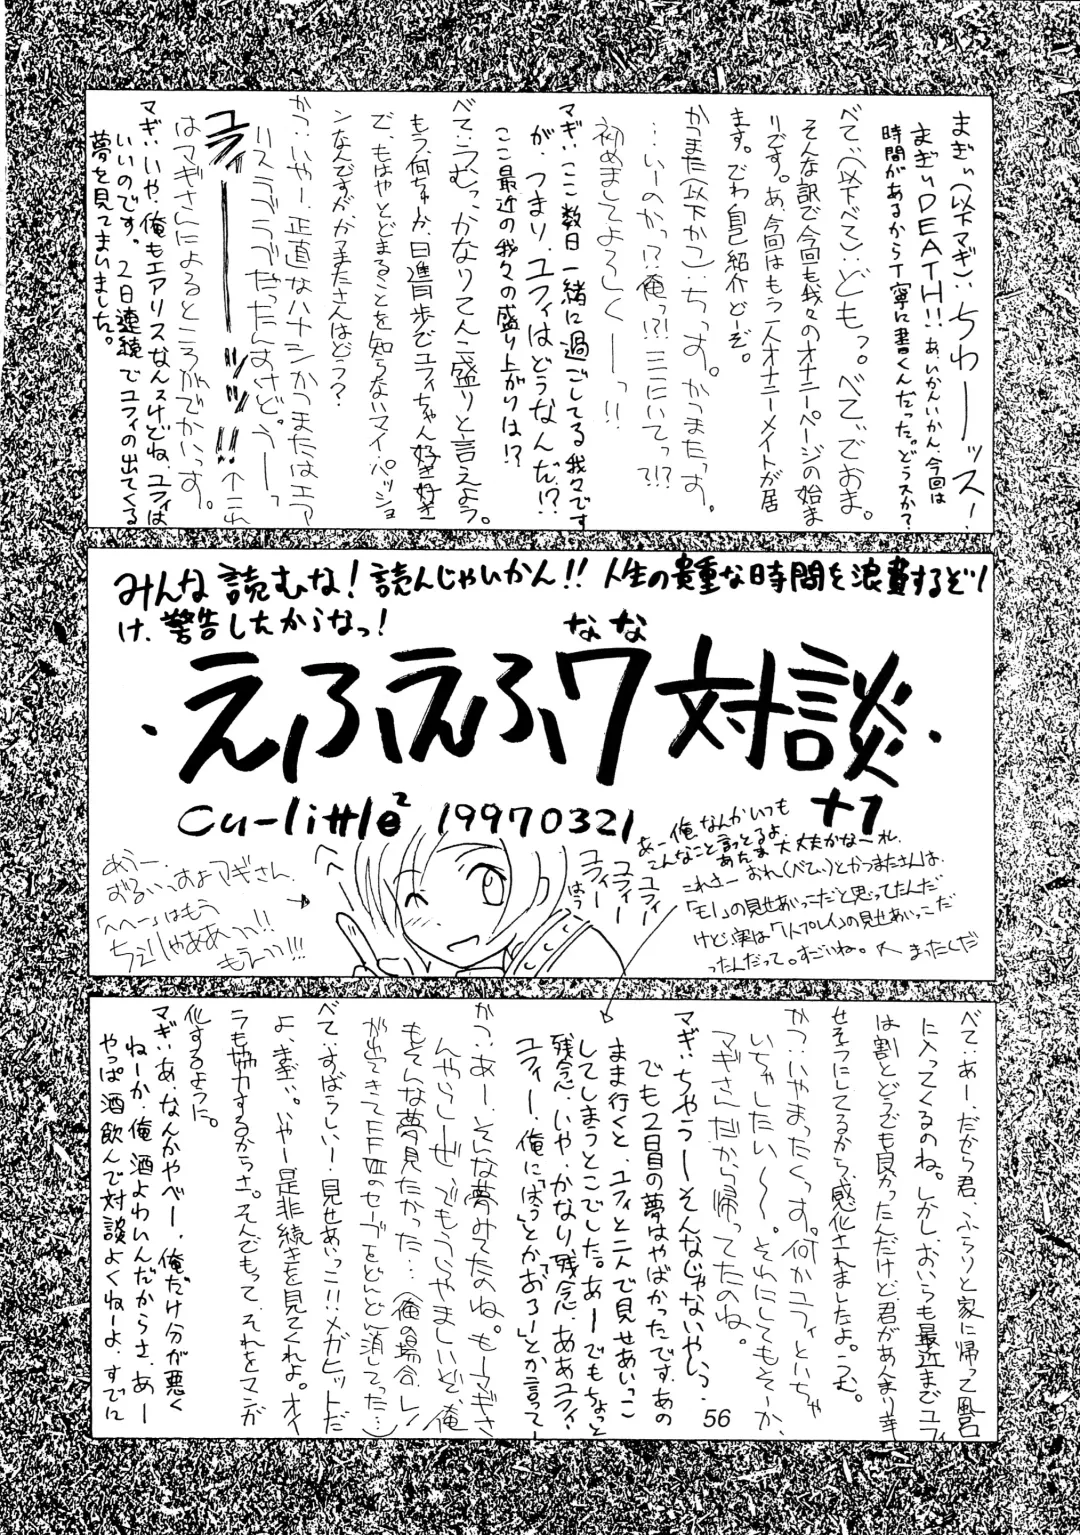 まぎぃ(以下マギ)：ちわーッス！
まぎぃDEATH!!あ、いかんいかん、今回は
時間があるから丁寧に書くんだった。どうスか？
べてぃ(以下べて)：どもっ。べてぃでおま。
そんな訳で今回も我々のオナニーページの始ま
りです。あ、今回はもう一人オナニーメイトが居
ます。でわ自己紹介どーぞ。
かつまた(以下かつ)：ちっす。かつまたっす。
…いーのかっ!?俺っ!?ここにいてっ!?
初めましてよろしくーっ!!
マギ：ここ数日一緒に過ごしてる我々です
が、つまり、ユフィはどうなんだ!?
ここ最近の我々の盛り上がりは!?
べて：うむっ、かなりてんこ盛りと言えよう。
もう何ちゅーか、日進月歩でユフィちゃん好き好き
で、もはやとどまることを知らないマイ・パッショ
ンなんですがかつまたさんはどう？
かつ：いやー、正直なハナシかつまたはエア
リスラブラブだったんすけどうーっ
ユフィーーーッッ!!↑これ
はマギさんによるところがでかいっす。
マギ：いや、俺もエアリスなんスけどね、ユフィは
いいのです。2日連続でユフィの出てくる
夢を見てまいました。
みんな読むな！読んじゃいかん!!人生の貴重な時間を浪費するぞ！
け、警告したからなっ！
なな
・えふえふ7対談・
+1
Cu-little2 19970321
あうー、
ずるいっすよマギさん。
「へへー」はもう
ちぇりゃああっ!!
もえっ!!!
へへ
ユフィー
ユフィー
ユフィー
はう
あー俺なんかいつも
こんなこと言っとるよ。
あたま大丈夫かなーれ。
これさー おれ(べてぃ)とかつまたさんは、
「モ！」の見せあいっこだと思ってたんだ
けど実は「1人プレイ」の見せあいっこだ
ったんだって。すごいね。
べて：あー、だから君、ふらりと家に帰って風呂
に入ってくるのね。しかし、おいらも最近までユフィ
は割とどうでも良かったんだけど、君があんまり幸
せそうにしてるから、感化されましたよ。うむ。
かつ：いやまったくっす。何かユフィといちゃ
いちゃしたい〜〜。それにしてもそーか、
マギさんだから帰ってたのね。
マギ：ちゃうーそんなじゃないやいっ。
でも2日目の夢はやばかったです。あの
まま行くと、ユフィと二人で見せあいっこ
してしまうとこでした。あーでもちょっと
残念、いや、かなり残念、ああユフィ・
ユフィー、俺に「はう」とか「おろー」とか言ってー
かつ：あー、そんな夢みてたのね。もーマギさ
んやらしーぜ、でもうらやましいどぇ、俺
もそんな夢見たかった…(俺の場合、レノ
が出てきてFFⅦのセーブをどんどん消してった…)
べて：すばらしいー！見せあいっこ!!メガヒットだ
よ、まぎぃ。いやー是非続きを見てくれよ。オイ
ラも協力するからさ。そんでもって、それをマンガ
化するように。
マギ：あ、なんかやべー、俺だけ分が悪く
ねーか、俺酒よわいんだからさ、あー
やっぱ酒飲んで対談よくねーよ、すでに
56